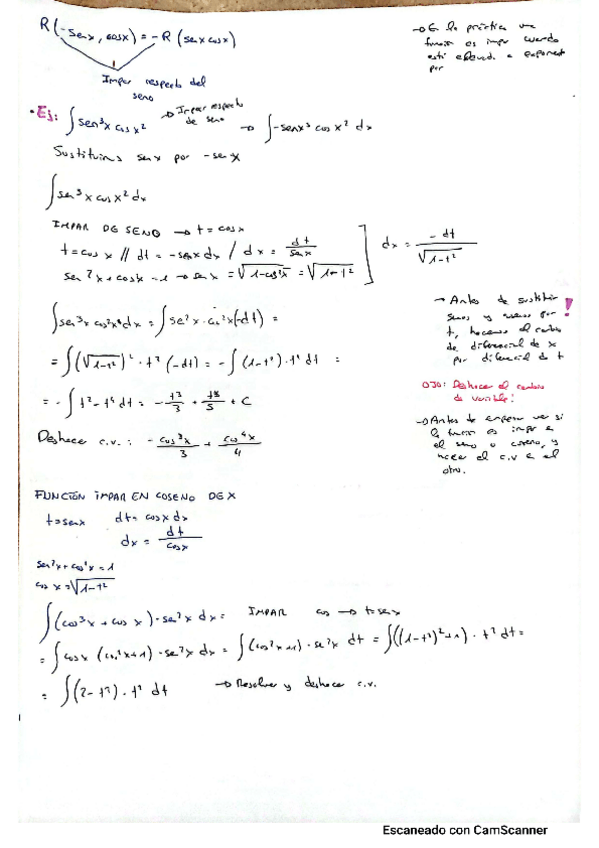 R(-senx, cosx) = -R(senx cosx)
Impar respecto del
seno
→ En la práctica una
función es impar cuando
está elevada a exponente
par
• Ej: ∫sen³x cosx² → Impar respecto
de seno → ∫-senx³ cosx² dx
Sustituimos senx por -senx
∫sen³x cosx² dx
IMPAR DE SENO → t = cosx
t = cosx // dt = -senx dx / dx = dt/senx
sen²x + cos²x = 1 → senx = √1-cos²x = √1-t²
dx = -dt/√1-t²
∫sen³x cos²x dx = ∫se²x · cos²x(-dt) =
= ∫(√1-t²)² · t² (-dt) = -∫(1-t²) · t² dt =
= -∫t²-t⁴ dt = -t³/3 + t⁵/5 + C
Deshacer c.v.: -cos³x/3 + cos⁴x/4
→ Antes de sustituir
senos y cosenos por
t, hacemos el cambio
de diferencial de x
por diferencial de t
!
OJO: Deshacer el cambio
de variable!
→ Antes de empezar ver si
la función es impar en
el seno o coseno, y
hacer el c.v en el
otro.
FUNCIÓN IMPAR EN COSENO DE X
t = senx dt = cosx dx
dx = dt/cosx
sen²x + cos²x = 1
cosx = √1-t²
∫(cos³x + cosx) · se²x dx = IMPAR cos → t = senx
= ∫cosx (cos²x+1) · se²x dx = ∫(cos²x+1) · se²x dt = ∫((1-t²)+1) · t² dt =
= ∫(2-t²) · t² dt → Resolver y deshacer c.v.
Escaneado con CamScanner